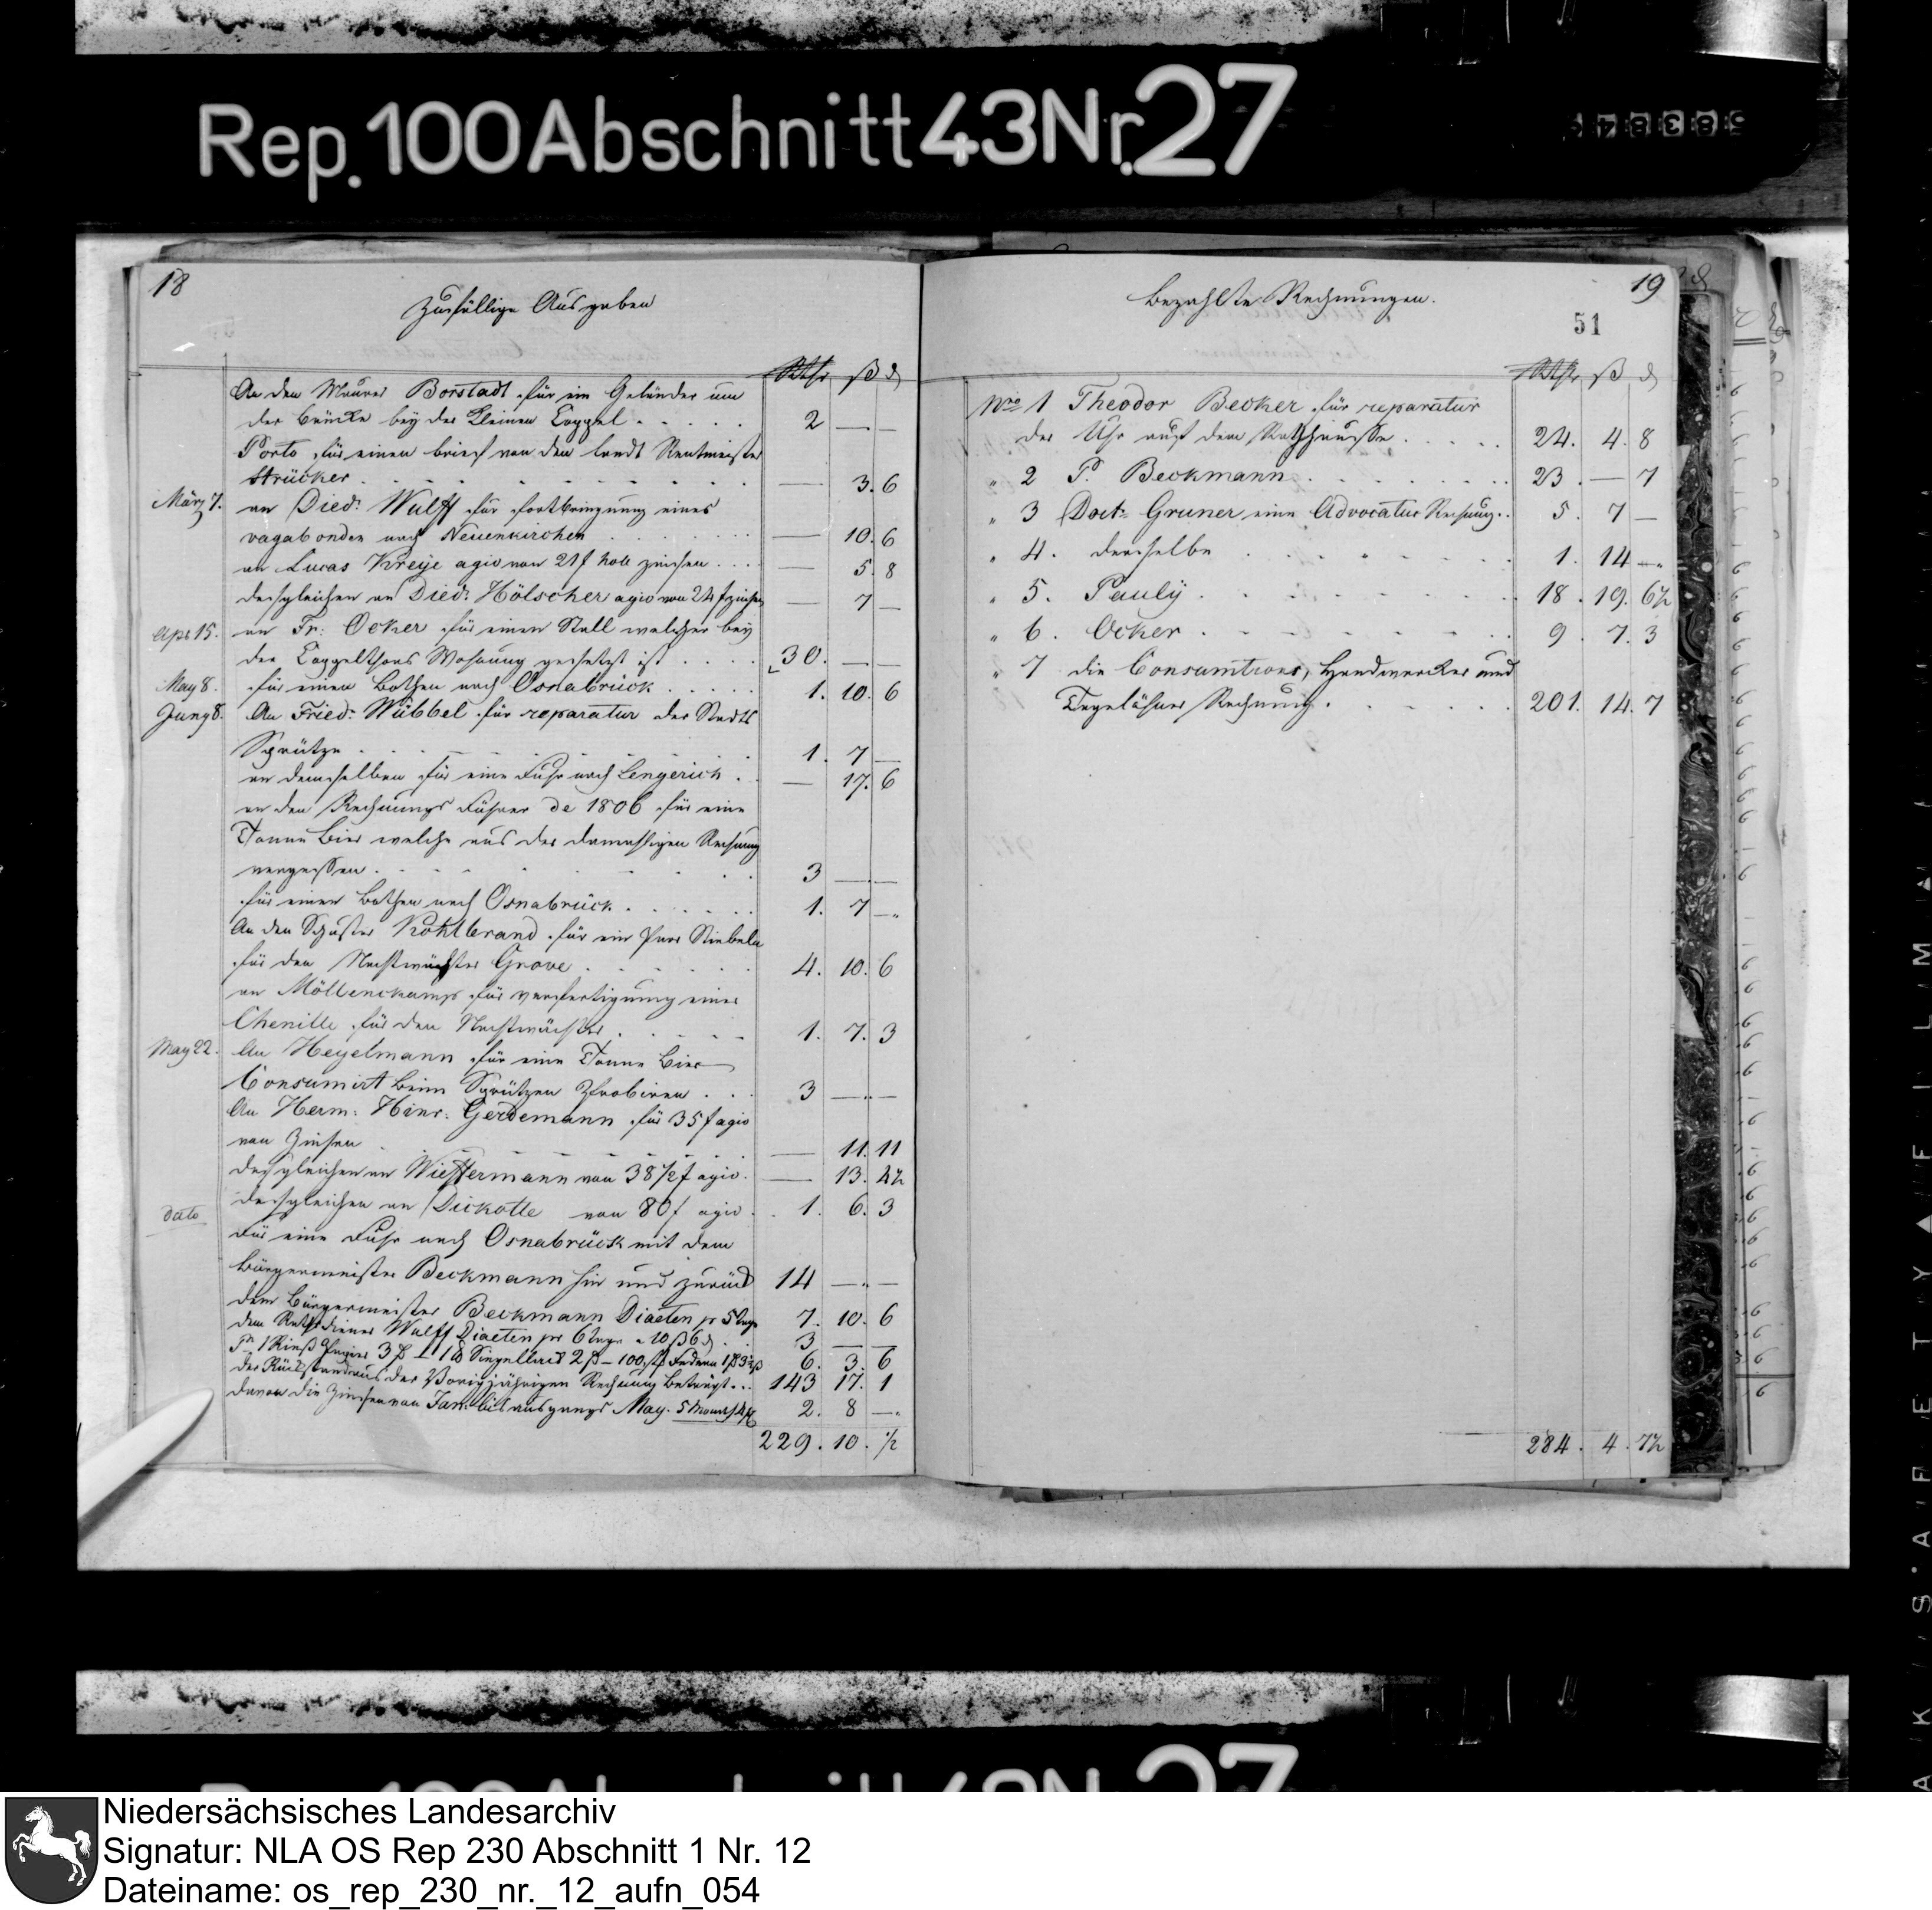 Rep. 100 Abschnitt 43 Nr. 27
18
Zufällige Ausgaben
Rthr ß d
An den Maurer Borstadt für ein Geländer um
der Brücke bey der Kleinen Cappel . . . . . 2 — —
Porto für einen brief von dem landt Rentmeister
Strücker . . . . . — 3. 6
März 7. an Died: Wulff für fortbringung eines
vagabonden nach Neuenkirchen . . . . . — 10. 6
an Lucas Kreye agio von 21 f holl zinsen . . . . — 5. 8
desgleichen an Died: Hölscher agio von 24 f zinsen — 7 —
Apr 15. an Fr: Ocker für einen Stall welcher bey
der Cappelthors Wohnung gesetzt ist . . . . 30. — —
May 8. für einen Bothen nach Osnabrück . . . . . 1. 10. 6
Juny 8. An Fried: Wübbel für reparatur der Stadts
Sprütze . . . . . 1. 7 —
an demselben für eine Fuhr nach Lengerich . — 17. 6
an den Rechnungs Führer de 1806 für eine
Tonne Bier welche aus der damahligen Rechnung
vergessen . . . . . 3 — —
für einen Bothen nach Osnabrück . . . . . 1. 7 —
An den Schuster Kohlbrand für ein Paar Stiebeln
für den Nachtwächter Grove . . . . . 4. 10. 6
an Möllenckamp für verfertigung einer
Chenille für den Nachtwächter . . . . . 1. 7. 3
May 22. An Hegelmann für eine Tonne Bier
Consumirt beim Sprützen Probiren . . . 3 — —
An Herm: Hinr: Gerdemann für 35 f agio
von Zinsen . . . . . — 11. 11
desgleichen an Wiestermann von 38 1/2 f agio. — 13. 4½
desgleichen an Dickotte von 80 f agio . . 1. 6. 3
dato Für eine Fuhr nach Osnabrück mit dem
Bürgermeister Beckmann hin und zurück 14 — —
dem Bürgermeister Beckmann Diaeten pr 5 Tage 7. 10. 6
dem Rathsdiener Wulff Diaeten pr 6 Tage a 10 ß 6 d . 3 — —
1 Rieß Papier Siegellack 2 ß — 100 Federn 6. 3. 6
der Rückstand aus der Vorigjährigen Rechnung Beträgt . . . 143 17. 1
davon die Zinsen von Jan: bis ausgangs May. 5 Monat 2. 8 —
229. 10. ½
19
51
Bezahlte Rechnungen.
Rthr ß d
Nro 1 Theodor Becker für reparatur
der Uhr auf dem Rathhausse . . . . . 24. 4. 8
" 2 P. Beckmann . . . . . 23. — 7
" 3 Doct: Gruner eine Advocatur Rechnung . . 5. 7 —
" 4. derselbe . . . . . 1. 14 —
" 5. Pauly . . . . . 18. 19. 6½
" 6. Ocker . . . . . 9. 7. 3
" 7 die Consumtions, Handwercker und
Tagelöhner Rechnung . . . . . 201. 14. 7
284. 4. 7½
Niedersächsisches Landesarchiv
Signatur: NLA OS Rep 230 Abschnitt 1 Nr. 12
Dateiname: os_rep_230_nr._12_aufn_054